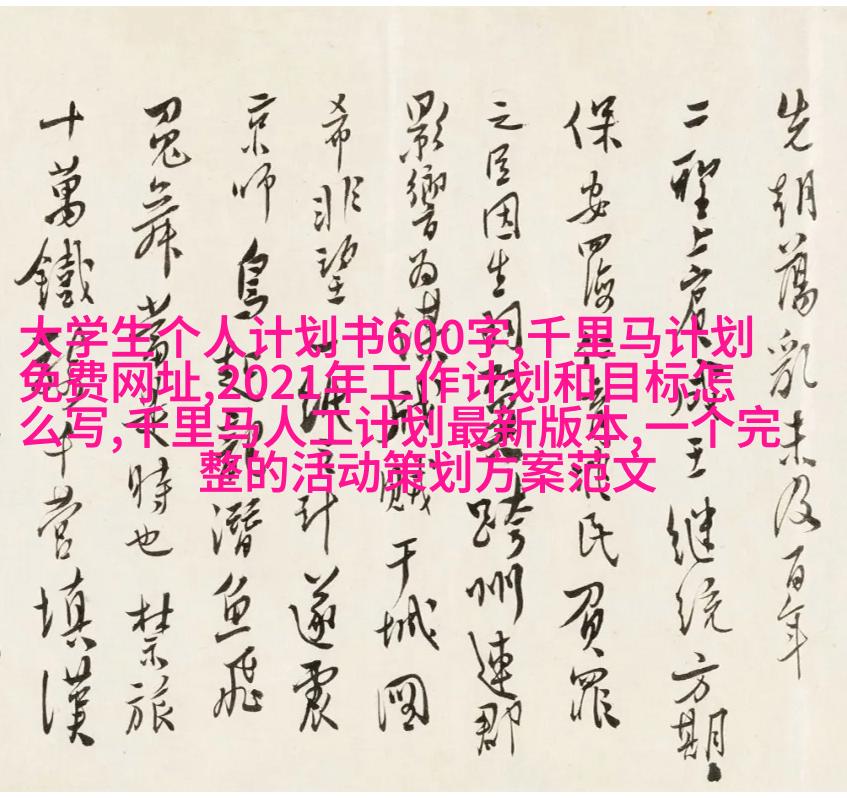 大学生个人计划书600字,千里马计划
免费网址,2021年工作计划和目标怎
么写,千里马人工计划最新版本,一个完
整的活动策划方案范文
先朝蕩亂未及百年
二聖上賓成王継統方期
保安四海民負罪
之臣因生跨州連郡
影響為干城國
希非望計遂震
京師鳥起潛魚飛
舞時也禁旅
十萬鐵千营填漢